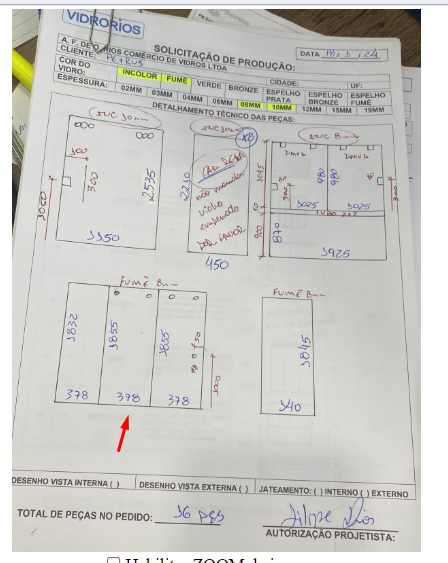 VIDRORIOS
SOLICITAÇÃO DE PRODUÇÃO:
DATA 18, 3, 24
A. F. DE O. RIOS COMÉRCIO DE VIDROS LTDA
CLIENTE: PETRUS
CIDADE: UF:
COR DO VIDRO: INCOLOR FUMÊ VERDE BRONZE ESPELHO PRATA ESPELHO BRONZE ESPELHO FUMÊ
ESPESSURA: 02MM 03MM 04MM 06MM 08MM 10MM 12MM 15MM 19MM
DETALHAMENTO TÉCNICO DAS PEÇAS:
INC 10mm INC 10mm INC 8mm
X8
300
300
3050
2535
1350
2210
não mandar
vidro
empenado
por favor
450
1045
50
900
980 980
300
1025 1025
870
1925
FUMÊ 8mm FUMÊ 8mm
1832 1855 1855
50
378 378 378
1845
140
DESENHO VISTA INTERNA ( ) DESENHO VISTA EXTERNA ( ) JATEAMENTO: ( ) INTERNO ( ) EXTERNO
TOTAL DE PEÇAS NO PEDIDO: 16 pçs
Filipe Rios
AUTORIZAÇÃO PROJETISTA: